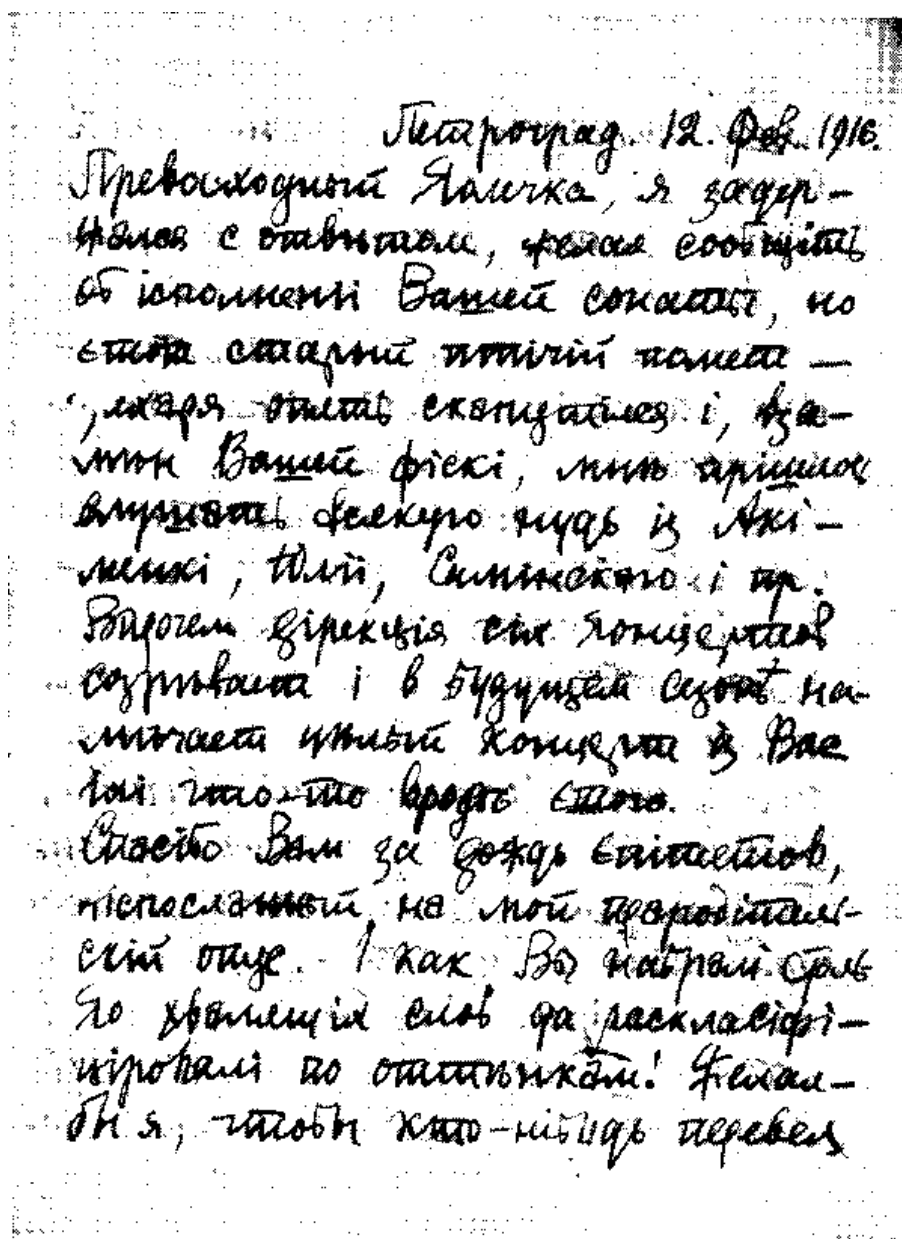 Петроград. 12. Фев. 1916.
Превосходный Яамчка, я задер-
жался с отвѣтом, желая сообщіть
об ісполненіі Вашей сонаты, но
Этот старый птічій помет —
опять скандаілся і, вза-
мѣн Вашей фіскі, мнѣ прішлось
слушать всякую нудь із Акі-
менкі, Юліі, Самінского і пр.
Впрочем дірекція сіх концертов
созрѣвает і в будущем сезонѣ на-
мѣчает цѣлый концерт із Вас
ілі что-то вродѣ этого.
Спасібо Вам за дождь эпітетов,
ніспосланный на мой прародітель-
скій опус. І как Вы набралі столь-
ко хвалящіх слов да расклассіфі-
ціровалі по оттѣнкам! Желал-
бы я, чтобы кто-нібудь перевел